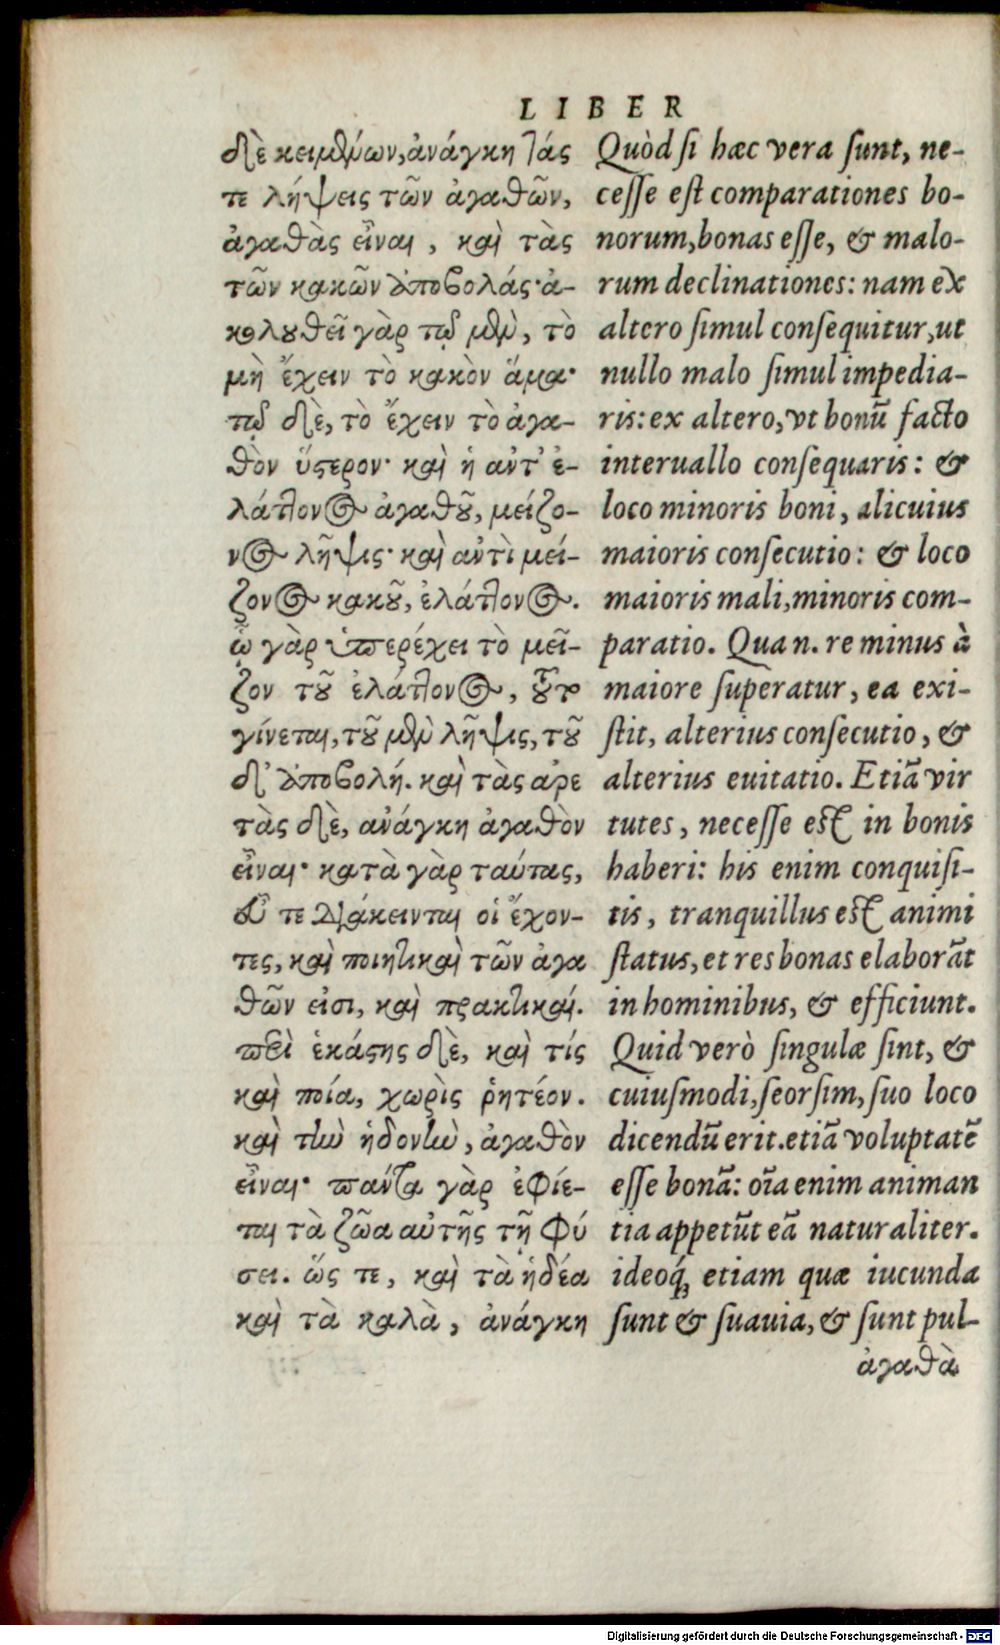 LIBER
δὲ κειμένων, ἀνάγκη τάς
τε λήψεις τῶν ἀγαθῶν,
ἀγαθὰς εἶναι, καὶ τὰς
τῶν κακῶν ἀποβολάς· ἀ-
κολουθεῖ γὰρ τῷ μὲν, τὸ
μὴ ἔχειν τὸ κακὸν ἅμα·
τῷ δὲ, τὸ ἔχειν τὸ ἀγα-
θὸν ὕστερον· καὶ ἡ ἀντ' ἐ-
λάττονος ἀγαθοῦ, μείζο-
νος λῆψις· καὶ ἀντὶ μεί-
ζονος κακοῦ, ἐλάττονος.
ᾧ γὰρ ὑπερέχει τὸ μεῖ-
ζον τοῦ ἐλάττονος, τούτῳ
γίνεται, τοῦ μὲν λῆψις, τοῦ
δ' ἀποβολή. καὶ τὰς ἀρε
τὰς δὲ, ἀνάγκη ἀγαθὸν
εἶναι· κατὰ γὰρ ταύτας,
εὖ τε διάκεινται οἱ ἔχον-
τες, καὶ ποιητικαὶ τῶν ἀγα
θῶν εἰσι, καὶ πρακτικαί.
περὶ ἑκάστης δὲ, καὶ τίς
καὶ ποία, χωρὶς ῥητέον.
καὶ τὴν ἡδονὴν, ἀγαθὸν
εἶναι· πάντα γὰρ ἐφίε-
ται τὰ ζῶα αὐτῆς τῇ φύ
σει. ὥς τε, καὶ τὰ ἡδέα
καὶ τὰ καλὰ, ἀνάγκη
Quòd si hæc vera sunt, ne-
cesse est comparationes bo-
norum, bonas esse, & malo-
rum declinationes: nam ex
altero simul consequitur, ut
nullo malo simul impedia-
ris: ex altero, vt bonū facto
interuallo consequaris: &
loco minoris boni, alicuius
maioris consecutio: & loco
maioris mali, minoris com-
paratio. Qua n. re minus à
maiore superatur, ea exi-
stit, alterius consecutio, &
alterius euitatio. Etiā vir
tutes, necesse est in bonis
haberi: his enim conquisi-
tis, tranquillus est animi
status, et res bonas elaborāt
in hominibus, & efficiunt.
Quid verò singulæ sint, &
cuiusmodi, seorsim, suo loco
dicendū erit. etiā voluptatē
esse bonā: oīa enim animan
tia appetūt eā naturaliter.
ideoq́; etiam quæ iucunda
sunt & suauia, & sunt pul-
ἀγαθὰ
Digitalisierung gefördert durch die Deutsche Forschungsgemeinschaft - DFG